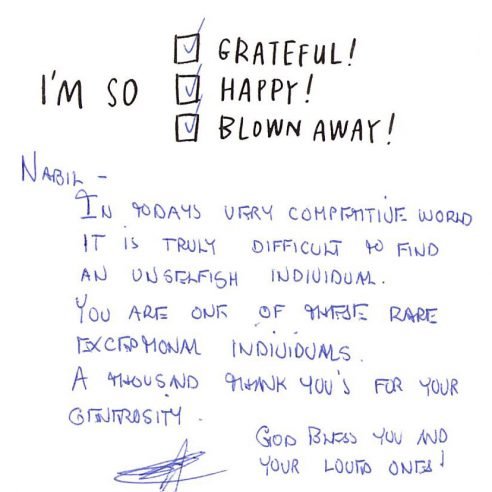 I'M SO
GRATEFUL!
HAPPY!
BLOWN AWAY!
NABIL -
IN TODAYS VERY COMPETITIVE WORLD
IT IS TRULY DIFFICULT TO FIND
AN UNSELFISH INDIVIDUAL.
YOU ARE ONE OF THESE RARE
EXCEPTIONAL INDIVIDUALS.
A THOUSAND THANK YOU'S FOR YOUR
GENEROSITY.
GOD BLESS YOU AND
YOUR LOVED ONES!